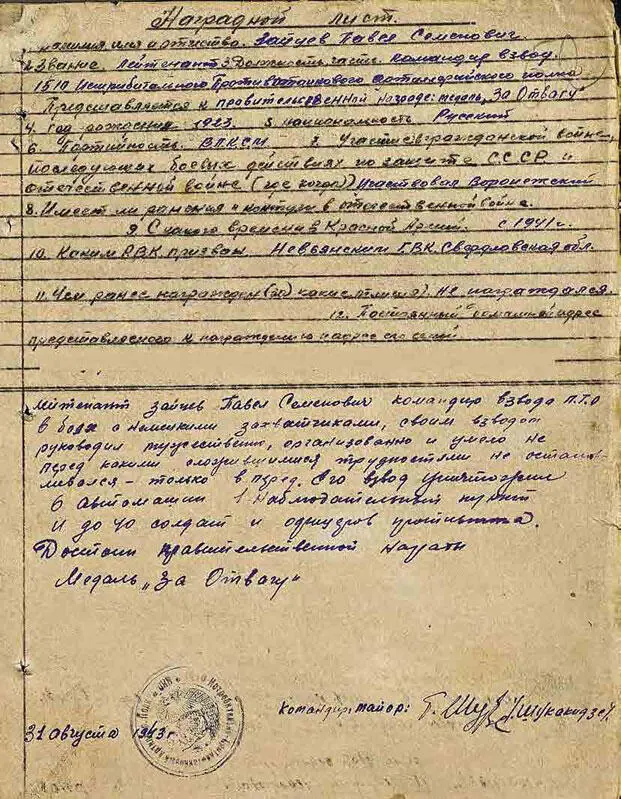 Наградной лист.
Фамилия имя и отчество. Зайцев Павел Семенович.
2. Звание. Лейтенант 3. Должность, часть. Командир взвода.
1510 Истребительного Противотанкового артиллерийского полка
Представляется к правительственной награде: медаль „За Отвагу"
4. год рождения 1923. 5. национальность Русский
6. Партийность. ВЛКСМ 7. Участие в гражданской войне,
последующих боевых действиях по защите СССР и
отечественной войне (где когда) Участвовал Воронежский
8. Имеет ли ранения и контузии в отечественной война.
9. С какого времени в Красной Армии. с 1941 г.
10. Каким Р.В.К. призван Невьянским Г.В.К. Свердловская обл.
11. Чем ранее награжден (за какие отличия). Не награждался.
12. Постоянный домашний адрес
представляемого к награждению и адрес его семьи
Лейтенант Зайцев Павел Семенович командир взвода П.Т.О
в боях с немецкими захватчиками, своим взводом
руководил мужественно, организованно и умело не
перед какими сложившимися трудностями не останав-
ливался – только в перед. Его взвод уничтожил
6 автомашин 1 наблюдательный пункт
и до 40 солдат и офицеров противника.
Достоин правительственной награды
Медаль „За Отвагу"
Командир, майор:
31 августа 1943 г.